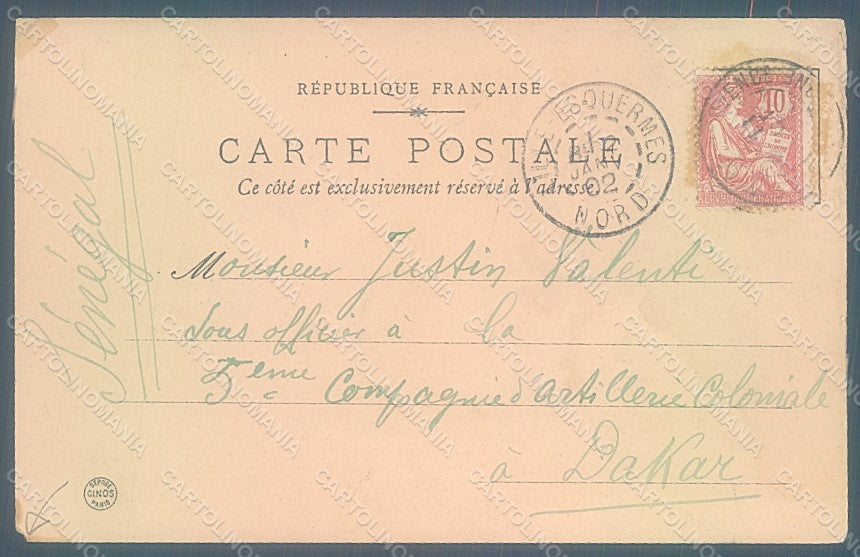 RÉPUBLIQUE FRANÇAISE
CARTE POSTALE
Ce côté est exclusivement réservé à l'adresse
LILLE-ESQUERMES
JANV
02
NORD
10
DROITS DE L'HOMME
REPUBLIQUE FRANÇAISE
Sénégal
Monsieur Justin Valenti
Sous officier à la
5ème Compagnie d'artillerie Coloniale
à Dakar
DÉPOSÉ
GINOS
PARIS
CARTOLINOMANIA